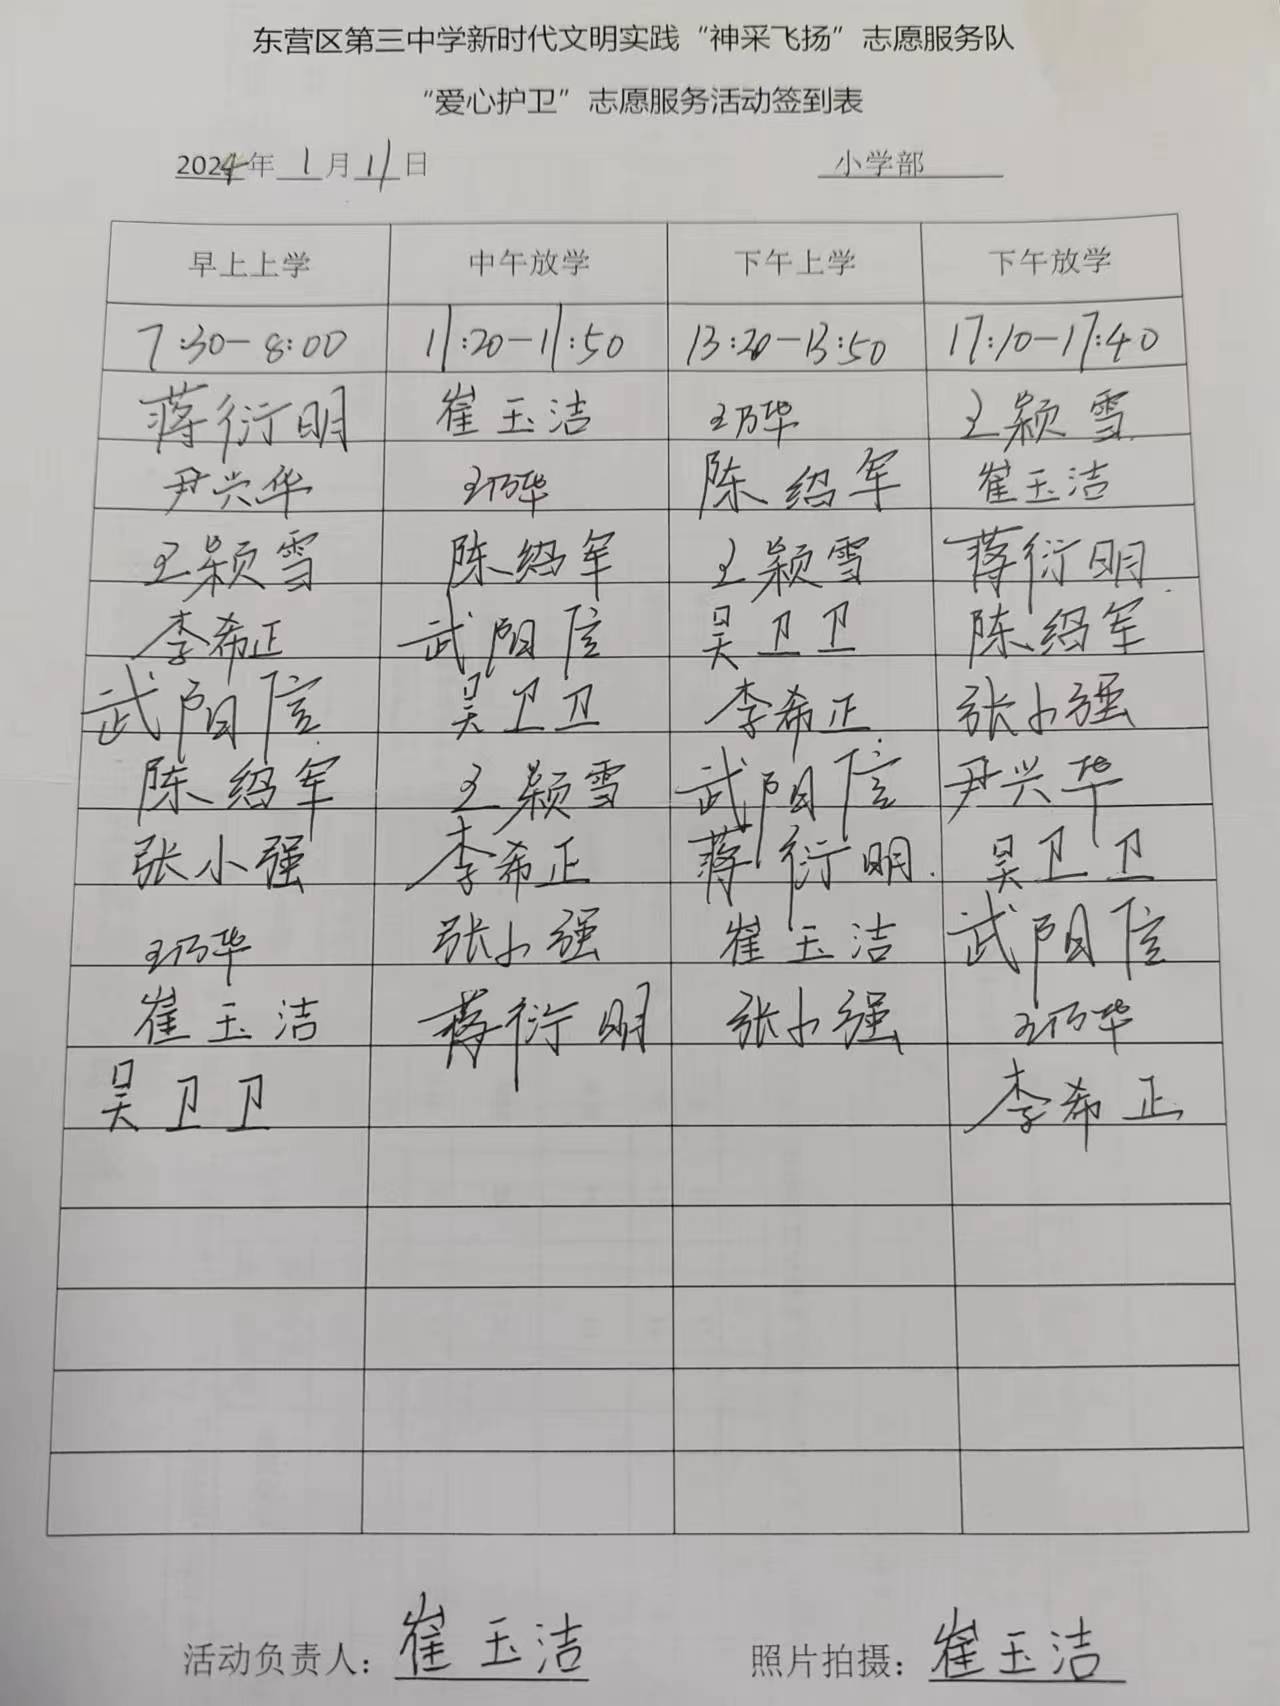 东营区第三中学新时代文明实践“神采飞扬”志愿服务队
“爱心护卫”志愿服务活动签到表
2024年 1月11日 小学部
早上上学 中午放学 下午上学 下午放学
7:30-8:00 11:20-11:50 13:20-13:50 17:10-17:40
蒋衍明 崔玉洁 王乃华 王颖雪
尹兴华 王乃华 陈绍军 崔玉洁
王颖雪 陈绍军 王颖雪 蒋衍明
李希正 武阳信 吴卫卫 陈绍军
武阳信 吴卫卫 李希正 张小强
陈绍军 王颖雪 武阳信 尹兴华
张小强 李希正 蒋衍明 吴卫卫
王乃华 张小强 崔玉洁 武阳信
崔玉洁 蒋衍明 张小强 王乃华
吴卫卫 李希正
活动负责人：崔玉洁 照片拍摄：崔玉洁